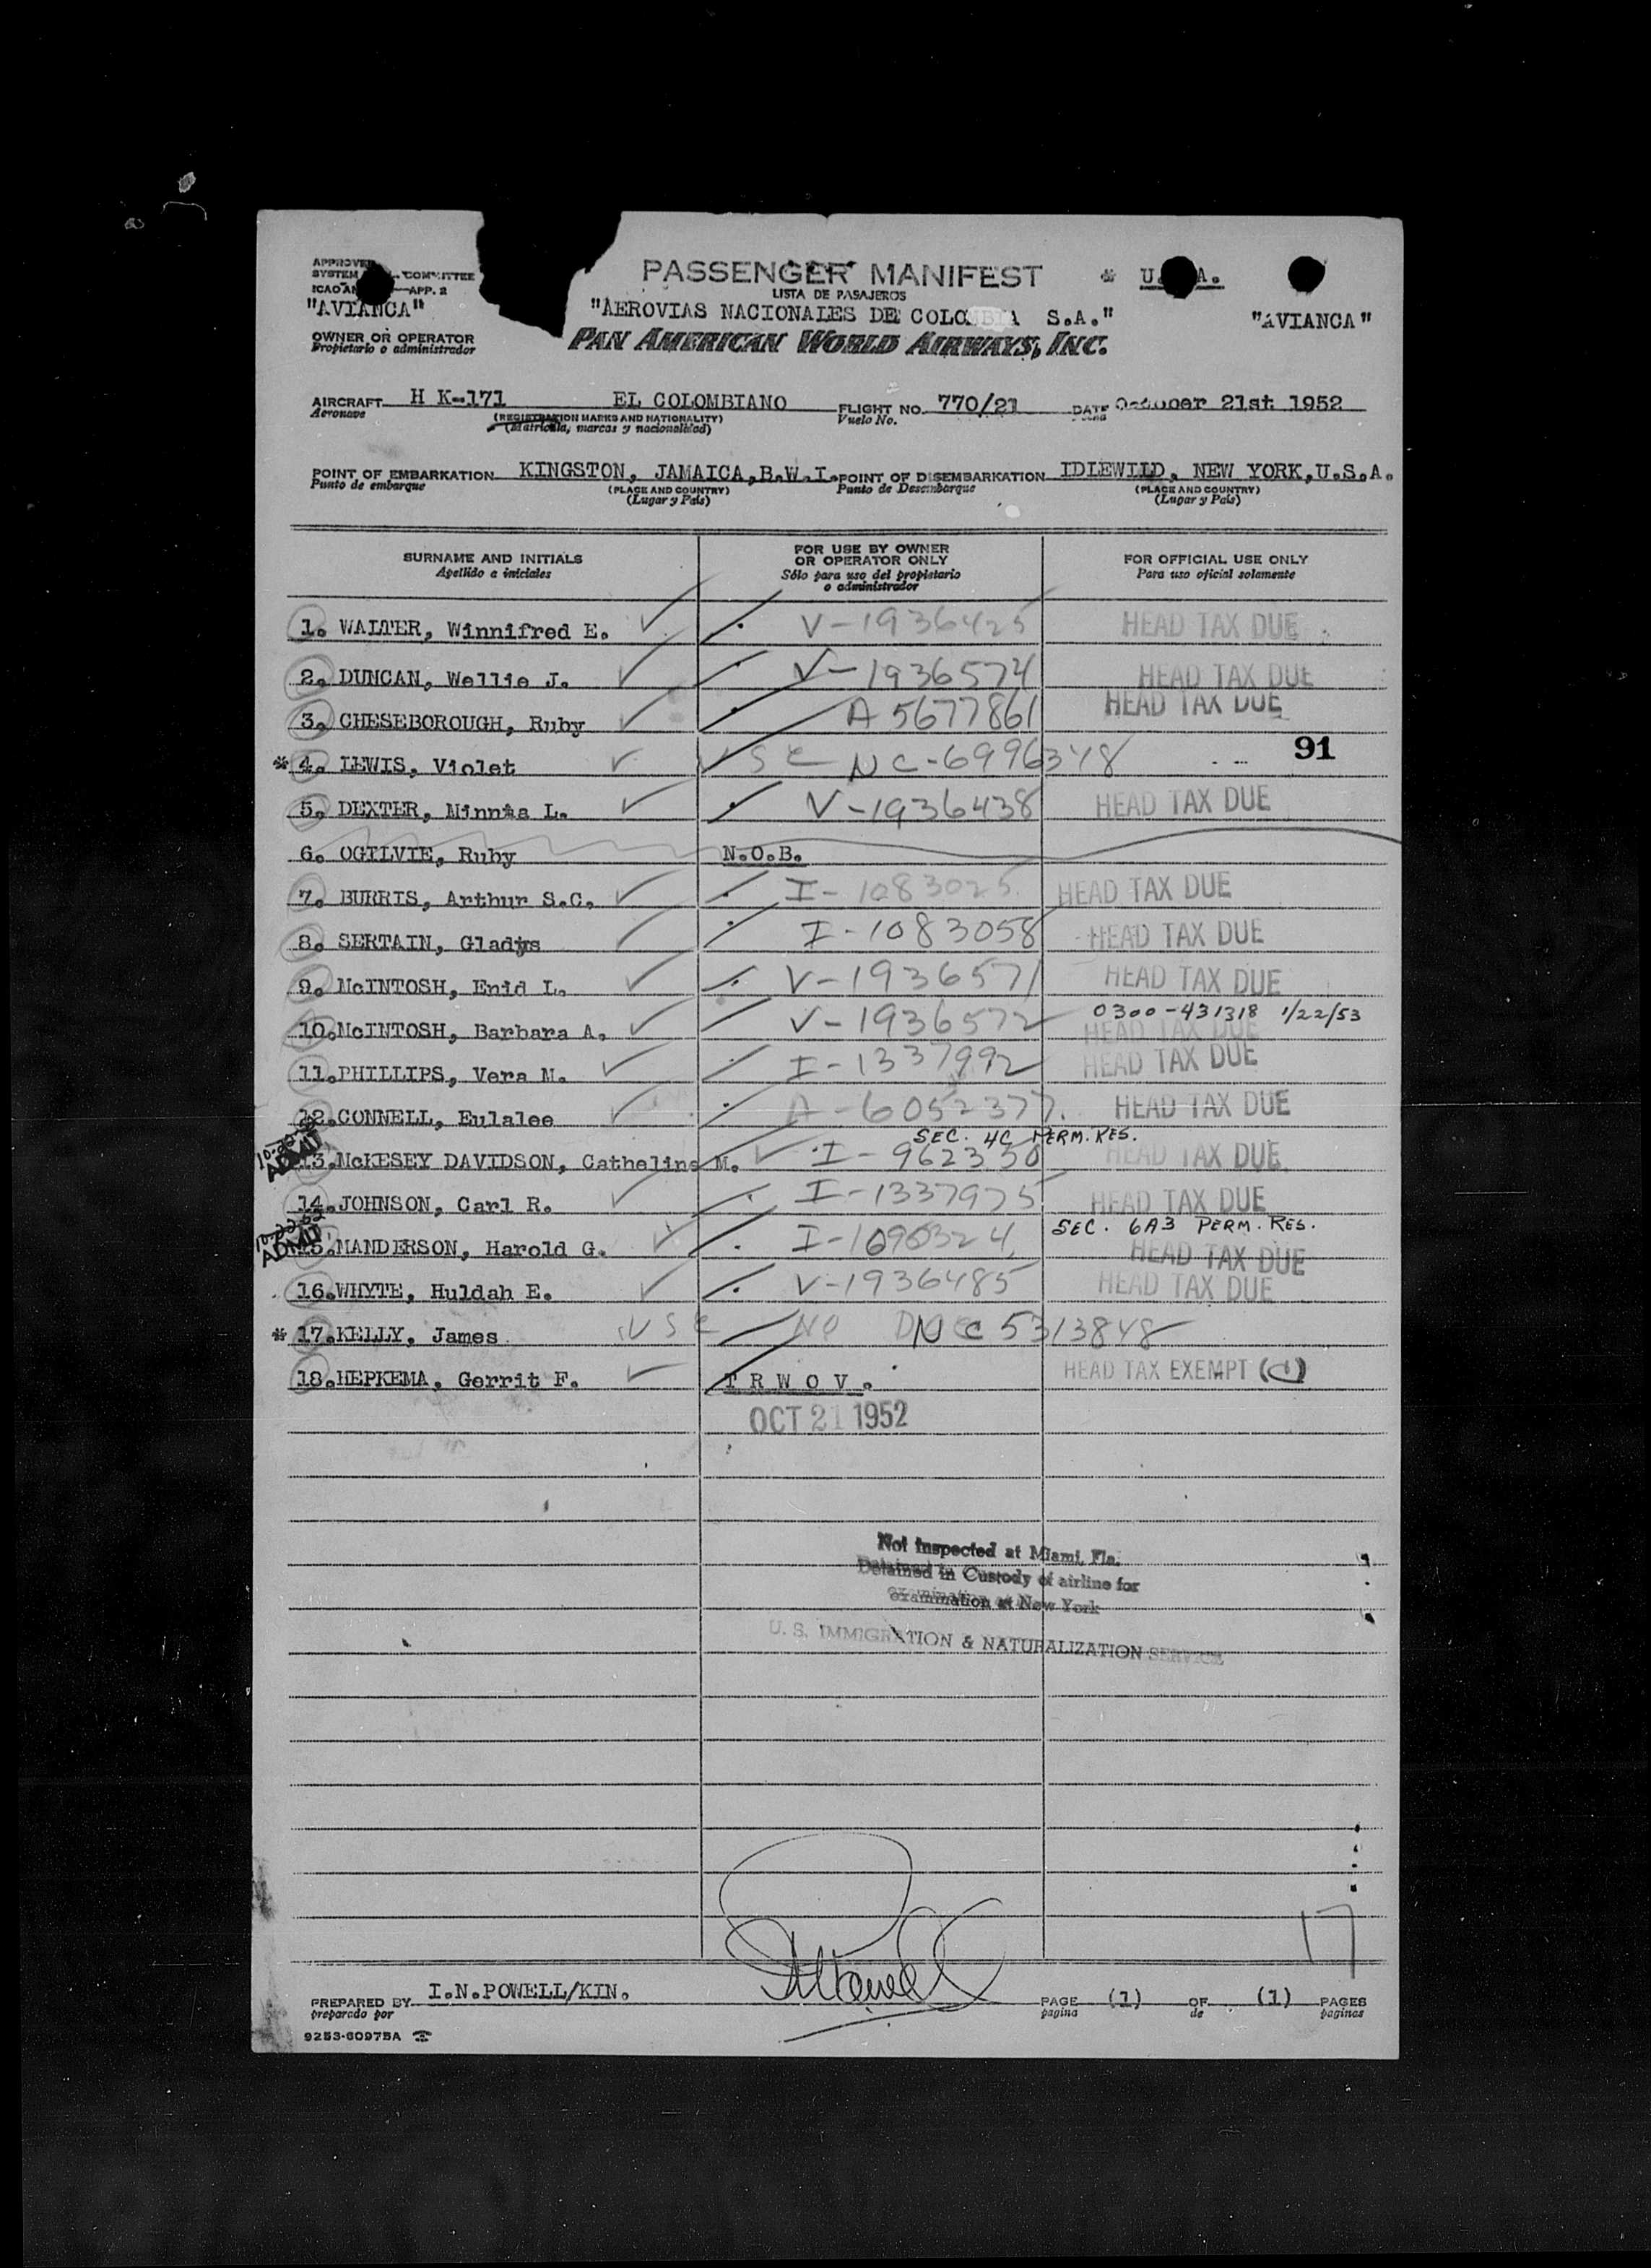 APPROVED
SYSTEM COMMITTEE
ICAO APP. 2
"AVIANCA"
OWNER OR OPERATOR
Propietario o administrador
PASSENGER MANIFEST
LISTA DE PASAJEROS
"AEROVIAS NACIONALES DE COLOMBIA S.A."
PAN AMERICAN WORLD AIRWAYS, INC.
* U. A.
"AVIANCA"
AIRCRAFT H K-171 EL COLOMBIANO FLIGHT NO. 770/21 DATE October 21st 1952
Aeronave (REGISTRATION MARKS AND NATIONALITY) Vuelo No.
(Matricula, marcas y nacionalidad)
POINT OF EMBARKATION KINGSTON, JAMAICA, B.W.I. POINT OF DISEMBARKATION IDLEWILD, NEW YORK, U.S.A.
Punto de embarque (PLACE AND COUNTRY) Punto de Desembarque (PLACE AND COUNTRY)
(Lugar y País) (Lugar y País)
SURNAME AND INITIALS
Apellido a iniciales
FOR USE BY OWNER
OR OPERATOR ONLY
Sólo para uso del propietario
o administrador
FOR OFFICIAL USE ONLY
Para uso oficial solamente
1. WALTER, Winnifred E. V-1936425 HEAD TAX DUE
2. DUNCAN, Wellie J. V-1936574 HEAD TAX DUE
3. CHESEBOROUGH, Ruby A 5677861 HEAD TAX DUE
* 4. LEWIS, Violet USC NC-6996348 91
5. DEXTER, Minnie L. V-1936438 HEAD TAX DUE
6. OGILVIE, Ruby N.O.B.
7. BURRIS, Arthur S.C. I-1083025 HEAD TAX DUE
8. SERTAIN, Gladys I-1083058 HEAD TAX DUE
9. McINTOSH, Enid L. V-1936571 HEAD TAX DUE
0300-431318 1/22/53
10. McINTOSH, Barbara A. V-1936572 HEAD TAX DUE
11. PHILLIPS, Vera M. I-1337992 HEAD TAX DUE
12. CONNELL, Eulalee A-6052377. HEAD TAX DUE
SEC. 4C PERM. RES.
ADMIT
13. McKESEY DAVIDSON, Catheline M. I-962350 HEAD TAX DUE
14. JOHNSON, Carl R. I-1337975 HEAD TAX DUE
10-22-52 SEC. 6A3 PERM. RES.
ADMIT
15. MANDERSON, Harold G. I-1090324 HEAD TAX DUE
16. WHYTE, Huldah E. V-1936485 HEAD TAX DUE
* 17. KELLY, James USC NC 5313848
18. HEPKEMA, Gerrit F. T R W O V. HEAD TAX EXEMPT
OCT 21 1952
Not Inspected at Miami, Fla.
Detained in Custody of airline for
examination at New York
U. S. IMMIGRATION & NATURALIZATION SERVICE
17
PREPARED BY I.N.POWELL/KIN. PAGE (1) OF (1) PAGES
preparado por pagina de paginas
9253-60975A